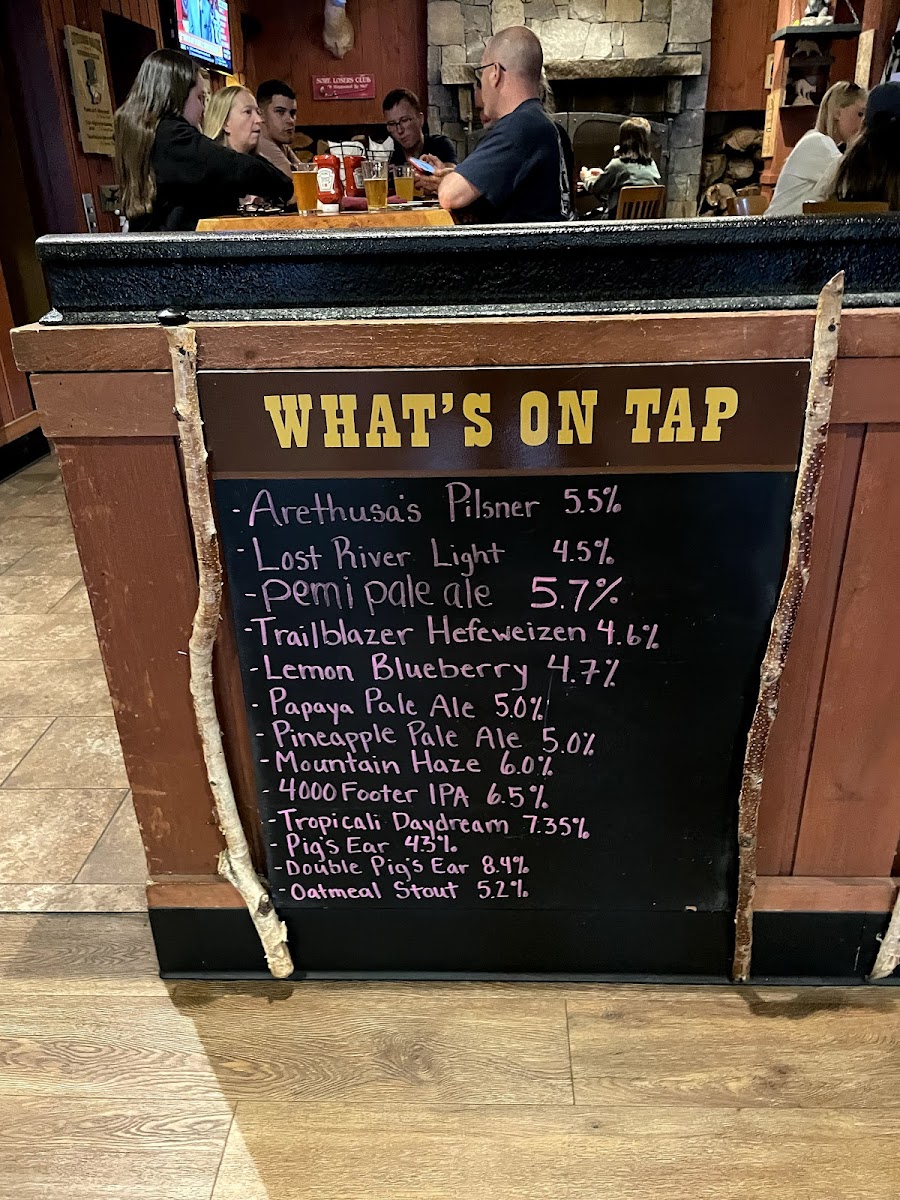 SORE LOSERS CLUB
HEINZ
WHAT'S ON TAP
- Arethusa's Pilsner 5.5%
- Lost River Light 4.5%
- Pemi pale ale 5.7%
- Trailblazer Hefeweizen 4.6%
- Lemon Blueberry 4.7%
- Papaya Pale Ale 5.0%
- Pineapple Pale Ale 5.0%
- Mountain Haze 6.0%
- 4000 Footer IPA 6.5%
- Tropicali Daydream 7.35%
- Pig's Ear 4.3%
- Double Pig's Ear 8.4%
- Oatmeal Stout 5.2%